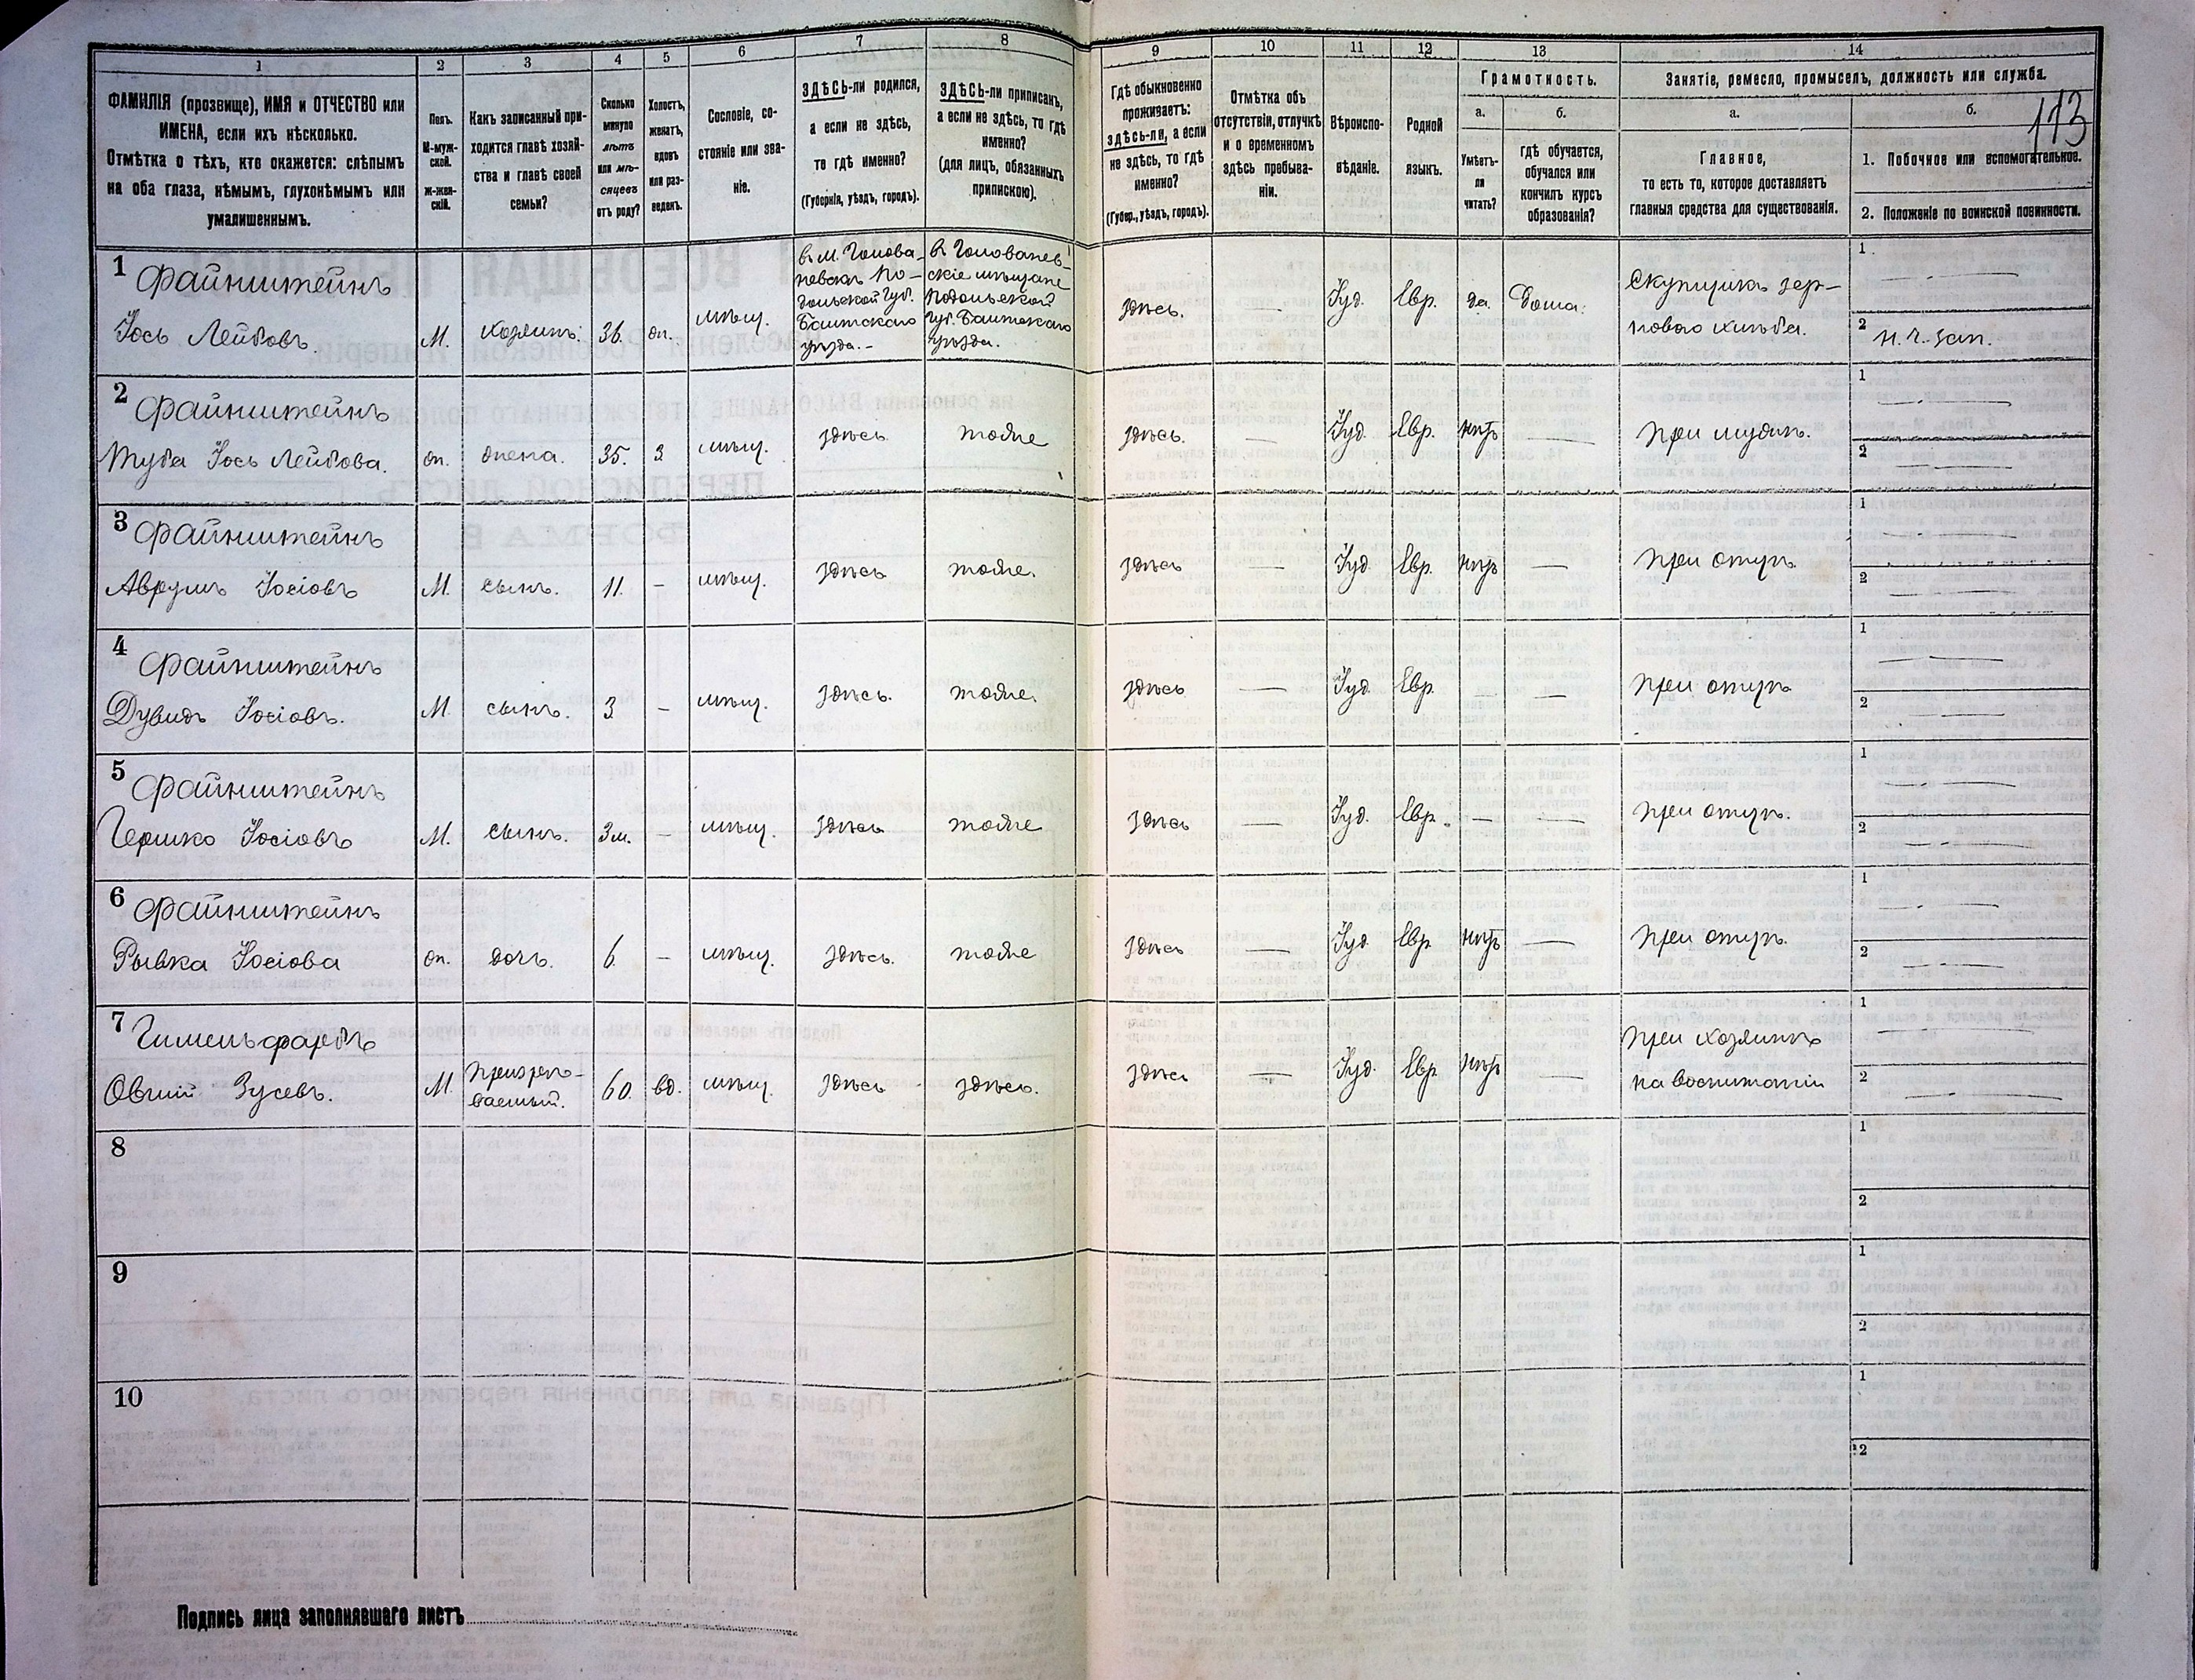 1 2 3 4 5 6 7 8 9 10 11 12 13 14
ФАМИЛІЯ (прозвище), ИМЯ и ОТЧЕСТВО или
ИМЕНА, если ихъ нѣсколько.
Отмѣтка о тѣхъ, кто окажется: слѣпымъ
на оба глаза, нѣмымъ, глухонѣмымъ или
умалишеннымъ.
Полъ.
М-муж-
ской.
ж-жен-
скій.
Какъ записанный при-
ходится главѣ хозяй-
ства и главѣ своей
семьи?
Сколько
минуло
лѣтъ
или мѣ-
сяцевъ
отъ роду?
Холостъ,
женатъ,
вдовъ
или раз-
веденъ.
Сословіе, со-
стояніе или зва-
ніе.
ЗДѢСЬ-ли родился,
а если не здѣсь,
то гдѣ именно?
(Губернія, уѣздъ, городъ).
ЗДѢСЬ-ли приписанъ,
а если не здѣсь, то гдѣ
именно?
(для лицъ, обязанныхъ
припискою).
Гдѣ обыкновенно
проживаетъ:
здѣсь-ли, а если
не здѣсь, то гдѣ
именно?
(Губер., уѣздъ, городъ).
Отмѣтка объ
отсутствіи, отлучкѣ
и о временномъ
здѣсь пребыва-
ніи.
Вѣроиспо-
вѣданіе.
Родной
языкъ.
Грамотность.
а.
Умѣетъ-
ли
читать?
б.
гдѣ обучается,
обучался или
кончилъ курсъ
образованія?
Занятіе, ремесло, промыселъ, должность или служба.
а.
Главное,
то есть то, которое доставляетъ
главныя средства для существованія.
б.
113
1. Побочное или вспомогательное.
2. Положеніе по воинской повинности.
1
Файнштейнъ
Іось Лейбовъ
М.
хозяинъ.
36.
жн.
мѣщ.
в м. Голова-
невскъ По-
дольской Губ.
Балтскаго
уѣзда.-
в Голованев-
скіе мѣщане
Подольской
Губ. Балтскаго
уѣзда.
здѣсь.
—
Іуд.
Евр.
да.
Дома.
Скупщикъ зер-
нового хлѣба.
1 —
2
2
Файнштейнъ
Туба Іось Лейбова.
жн.
жена.
35.
З
мѣщ.
здѣсь
тоже
здѣсь.
—
Іуд.
Евр.
нѣтъ
—
при мужѣ.
1 —
2 —
3
Файнштейнъ
Аврумъ Іосіовъ
М.
сынъ.
11.
-
мѣщ.
здѣсь
тоже.
здѣсь
—
Іуд.
Евр.
нѣтъ
—
при отцѣ.
1 —
2 —
4
Файнштейнъ
Дувидъ Іосіовъ.
М.
сынъ.
3
-
мѣщ.
здѣсь.
тоже.
здѣсь
—
Іуд.
Евр.
-
—
при отцѣ
1 —
2 —
5
Файнштейнъ
Гершко Іосіовъ
М.
сынъ.
3м.
-
мѣщ.
здѣсь
тоже
здѣсь
—
Іуд.
Евр.
—
—
при отцѣ.
1 —
2 —
6
Файнштейнъ
Рывка Іосіова
жн.
дочь.
6
-
мѣщ.
здѣсь.
тоже
здѣсь
—
Іуд.
Евр
нѣтъ
—
при отцѣ.
1 —
2 —
7
Гимельфарбъ
Овшій Зусевъ.
М
призрѣ-
ваемый.
60.
вд.
мѣщ.
здѣсь
здѣсь.
здѣсь
—
Іуд.
Евр
нѣтъ
—
при хозяинѣ
на воспитаніи
1 —
2 —
8
1
2
9
1
2
10
1
2
Подпись лица заполнявшаго листъ